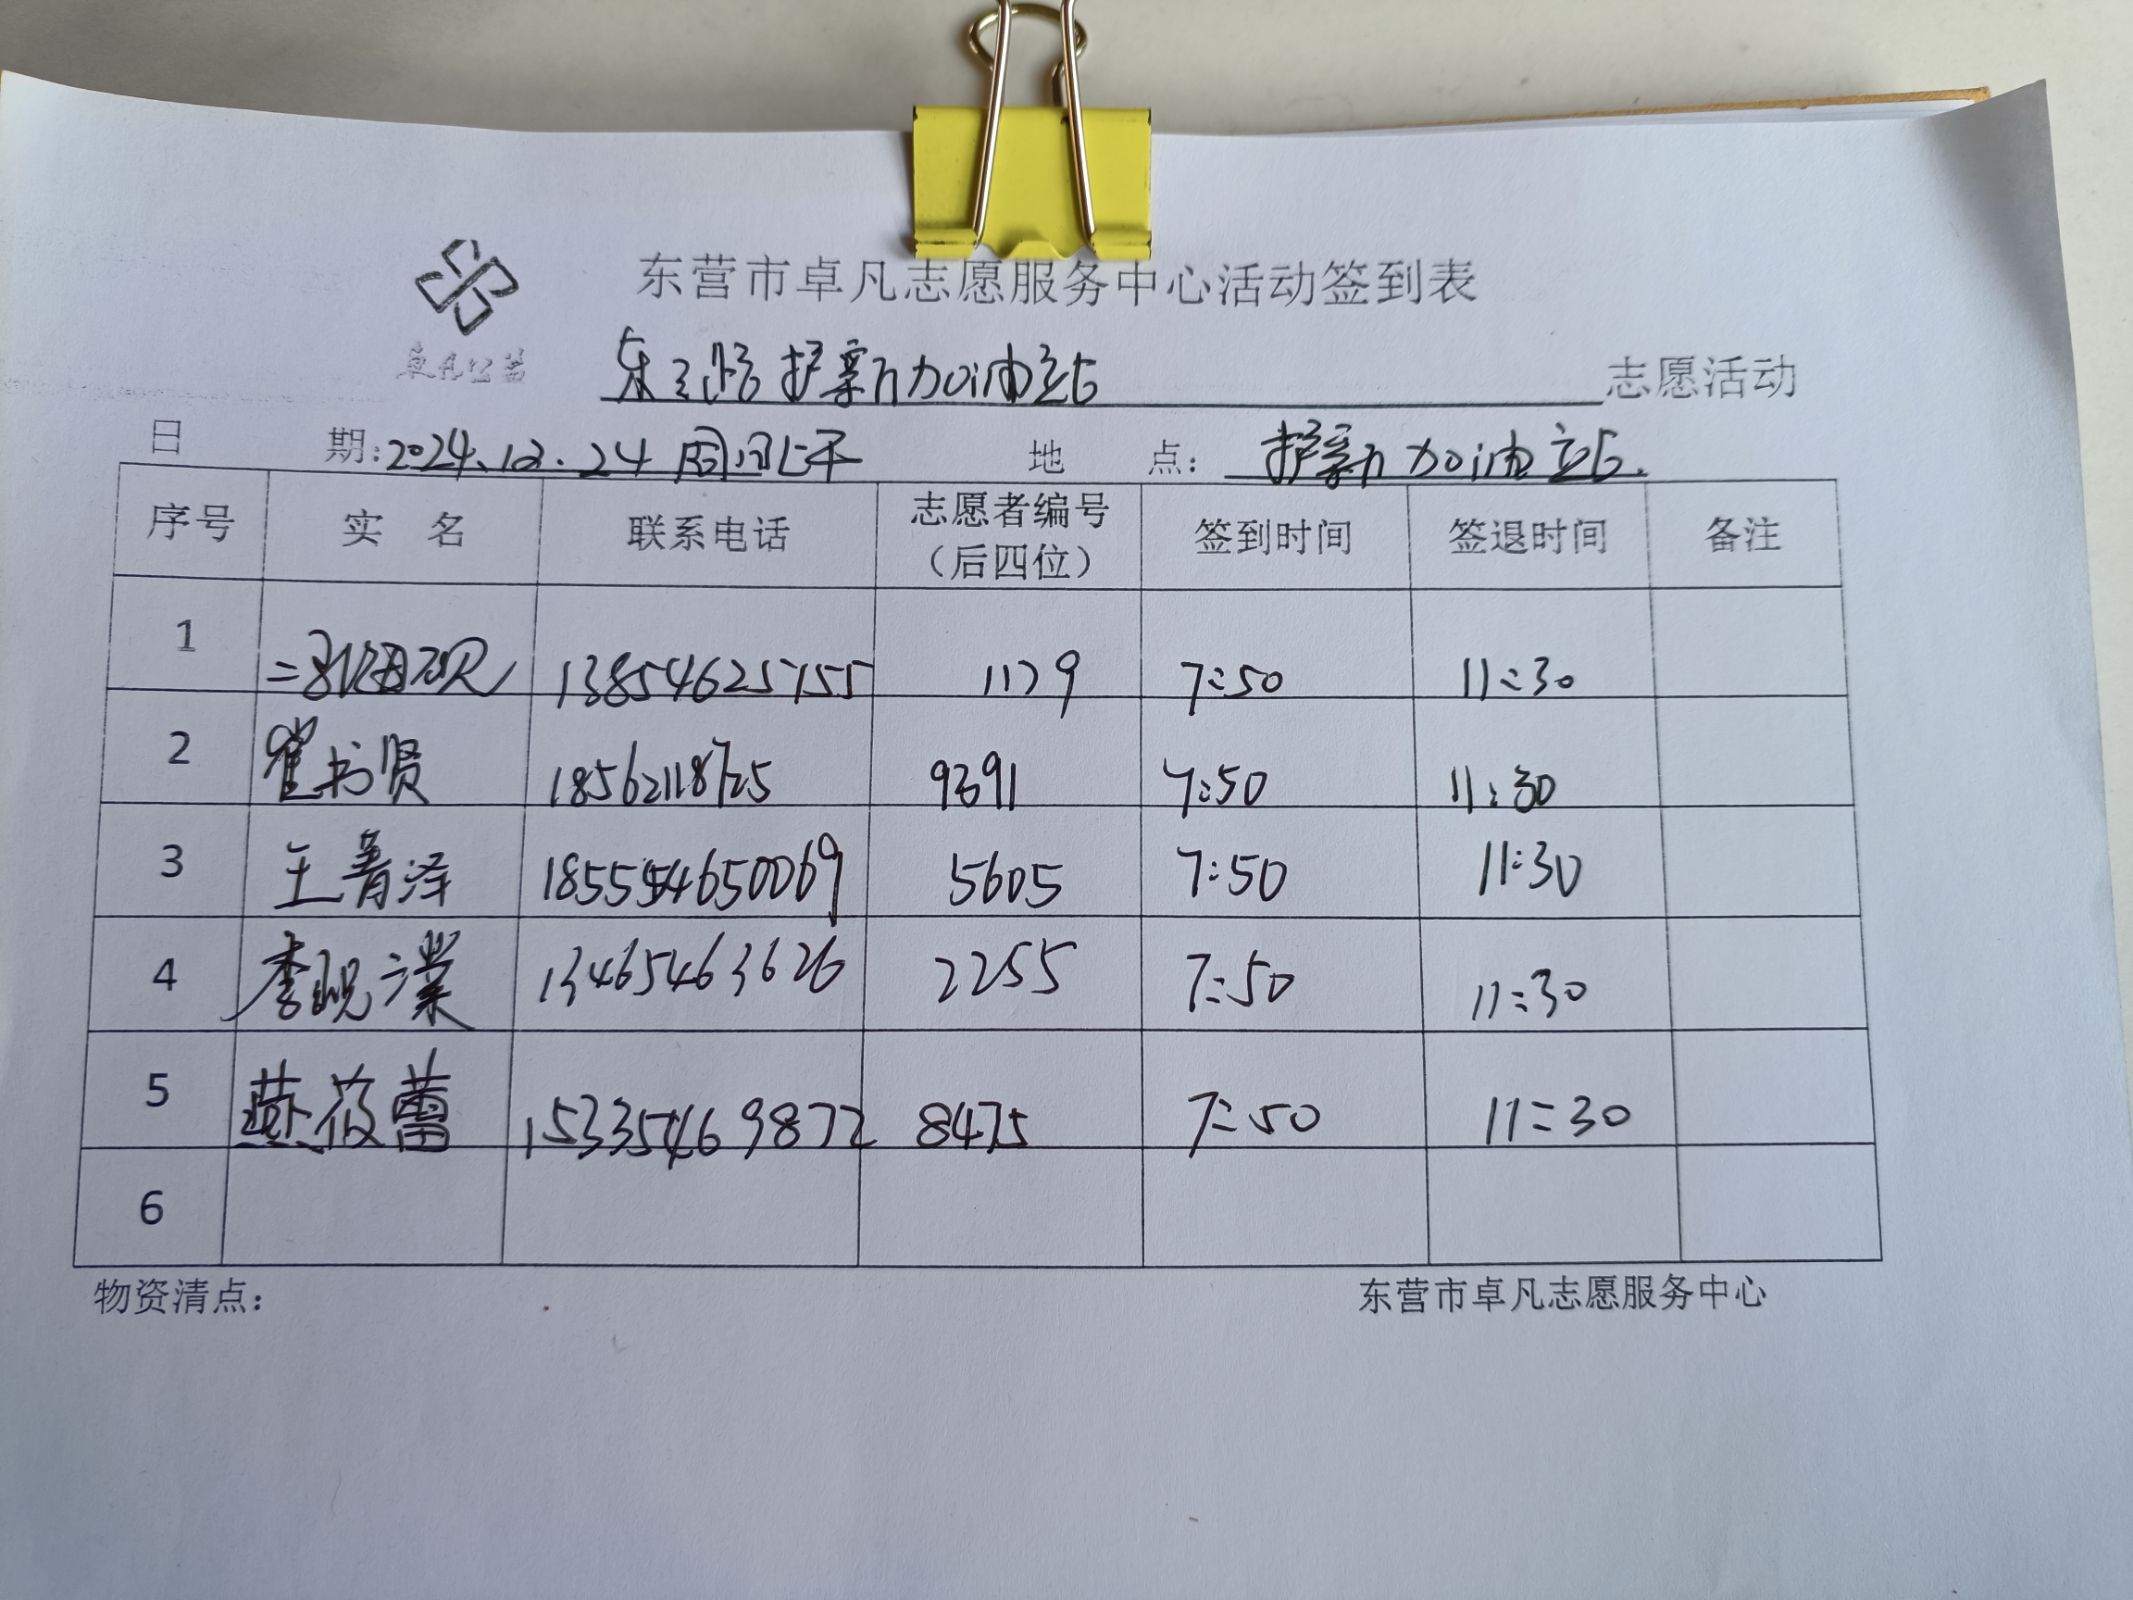 东营市卓凡志愿服务中心活动签到表
卓凡公益
东三路护薪加油站 志愿活动
日 期:2024.12.24 周二上午 地 点: 护薪加油站.
序号 实 名 联系电话 志愿者编号（后四位） 签到时间 签退时间 备注
1 13854625755 1129 7:50 11:30
2 崔书贤 18562118725 9391 7:50 11:30
3 王菁泽 5605 7:50 11:30
4 李砚 13465463626 2255 7:50 11:30
5 燕筱蕾 15335469872 8475 7:50 11:30
6
物资清点: 东营市卓凡志愿服务中心